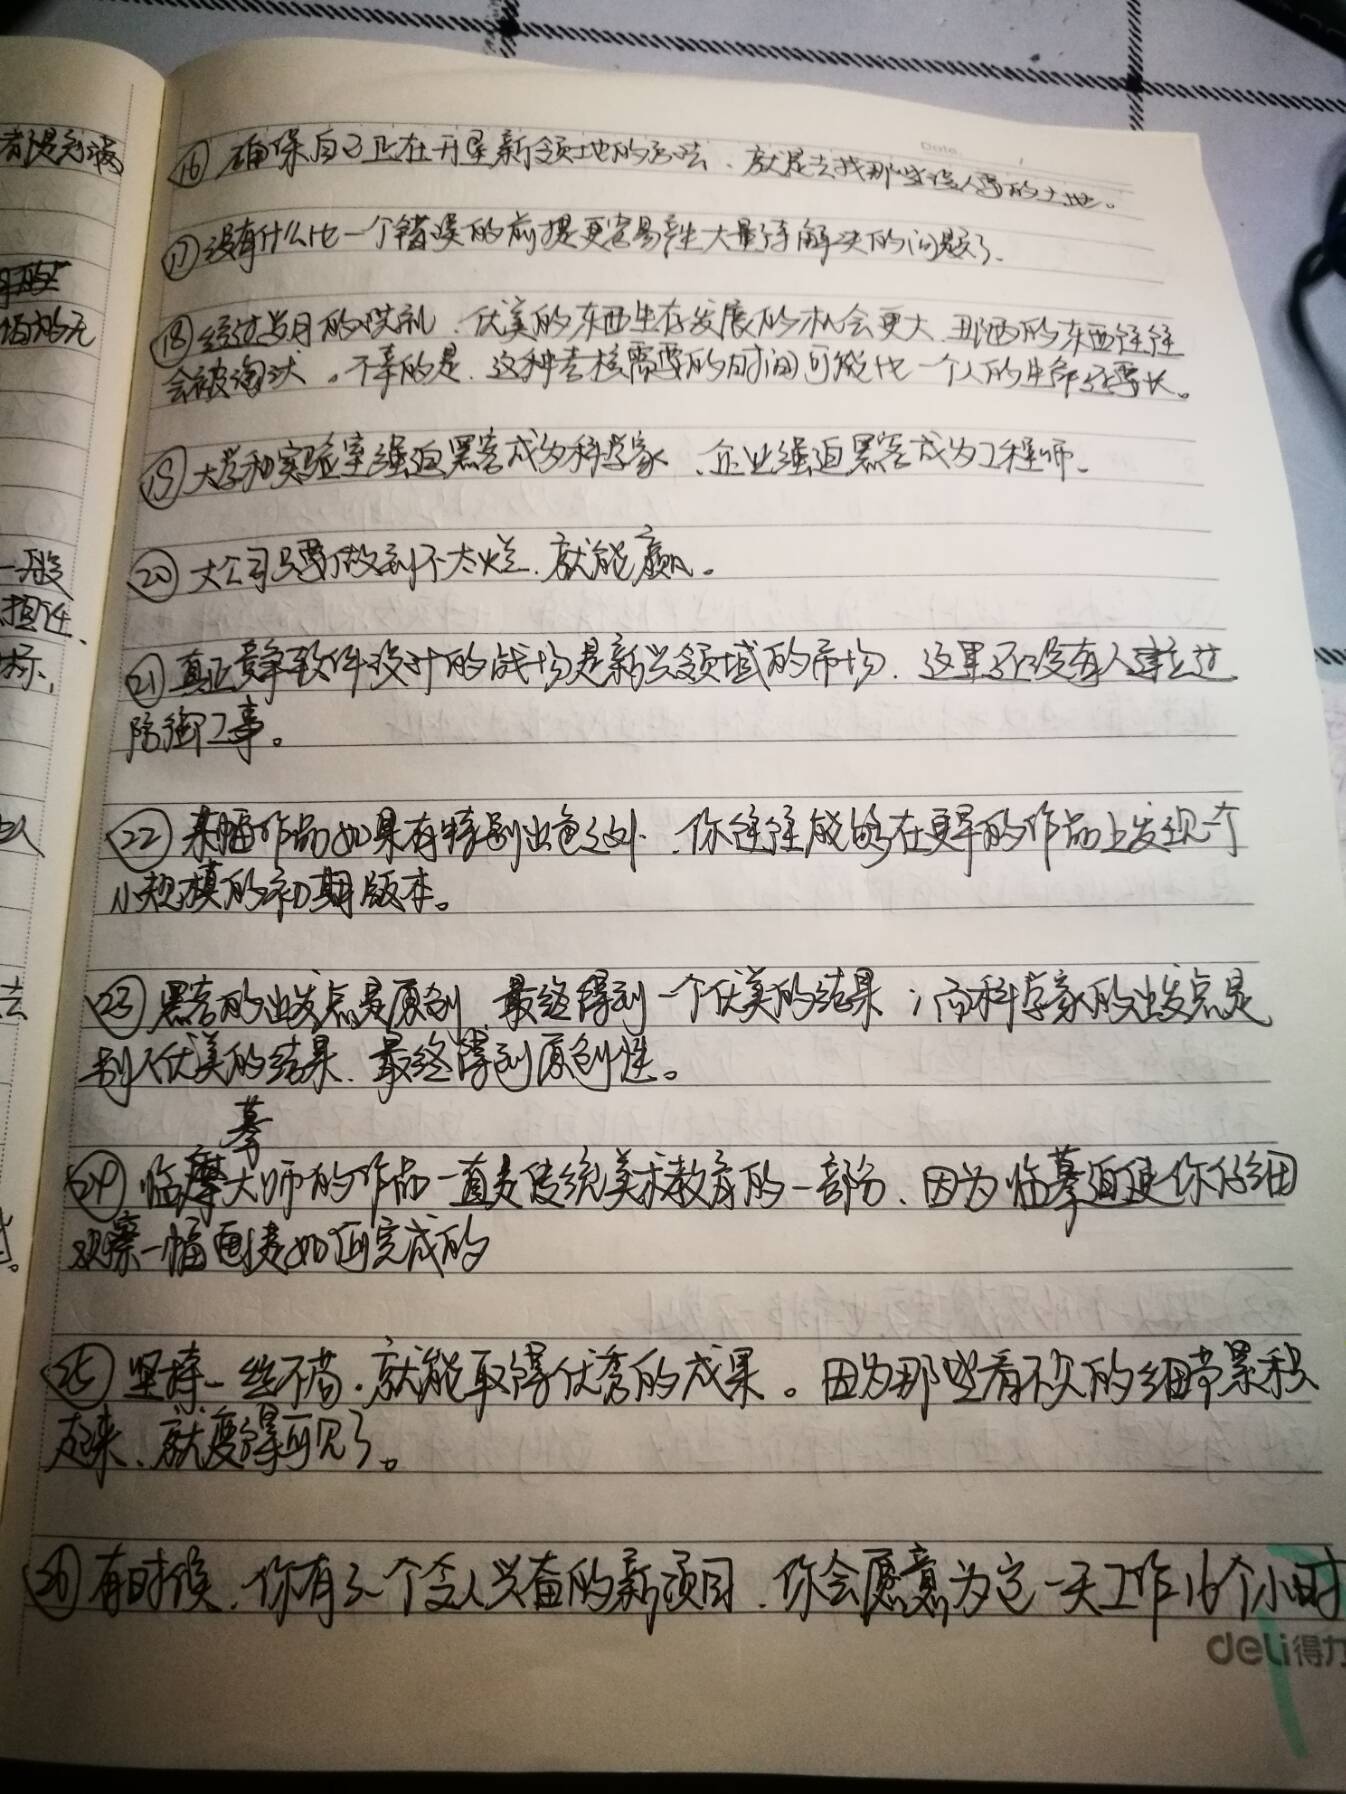 都是充满
⑯ 确保自己正在开垦新领地的方法、就是去找那些没人要的土地。
⑰ 没有什么比一个错误的前提更容易产生大量待解决的问题了、
⑱ 经过岁月的洗礼、优美的东西生存发展的机会更大、丑陋的东西往往
会被淘汰。不幸的是、这种考核需要的时间可能比一个人的生命还要长。
⑲ 大学和实验室强迫黑客成为科学家、企业强迫黑客成为工程师、
一般
担任、
⑳ 大公司只要做到不太烂、就能赢。
㉑ 真正竞争软件设计的战场是新兴领域的市场、这里还没有人建立过
防御工事。
㉒ 某幅作品如果有特别出色之处、你往往能够在更早的作品上发现一个
小规模的初期版本。
㉓ 黑客的出发点是原创、最终得到一个优美的结果；而科学家的出发点是
别人优美的结果、最终得到原创性。
去
摹
㉔ 临摩大师的作品一直是传统美术教育的一部分、因为临摹迫使你仔细
观察一幅画是如何完成的
㉕ 坚持一丝不苟、就能取得优秀的成果。因为那些看不见的细节累积
起来、就变得可见了。
㉖ 有时候、你有了一个令人兴奋的新项目、你会愿意为它一天工作16个小时
Date.
deli得力